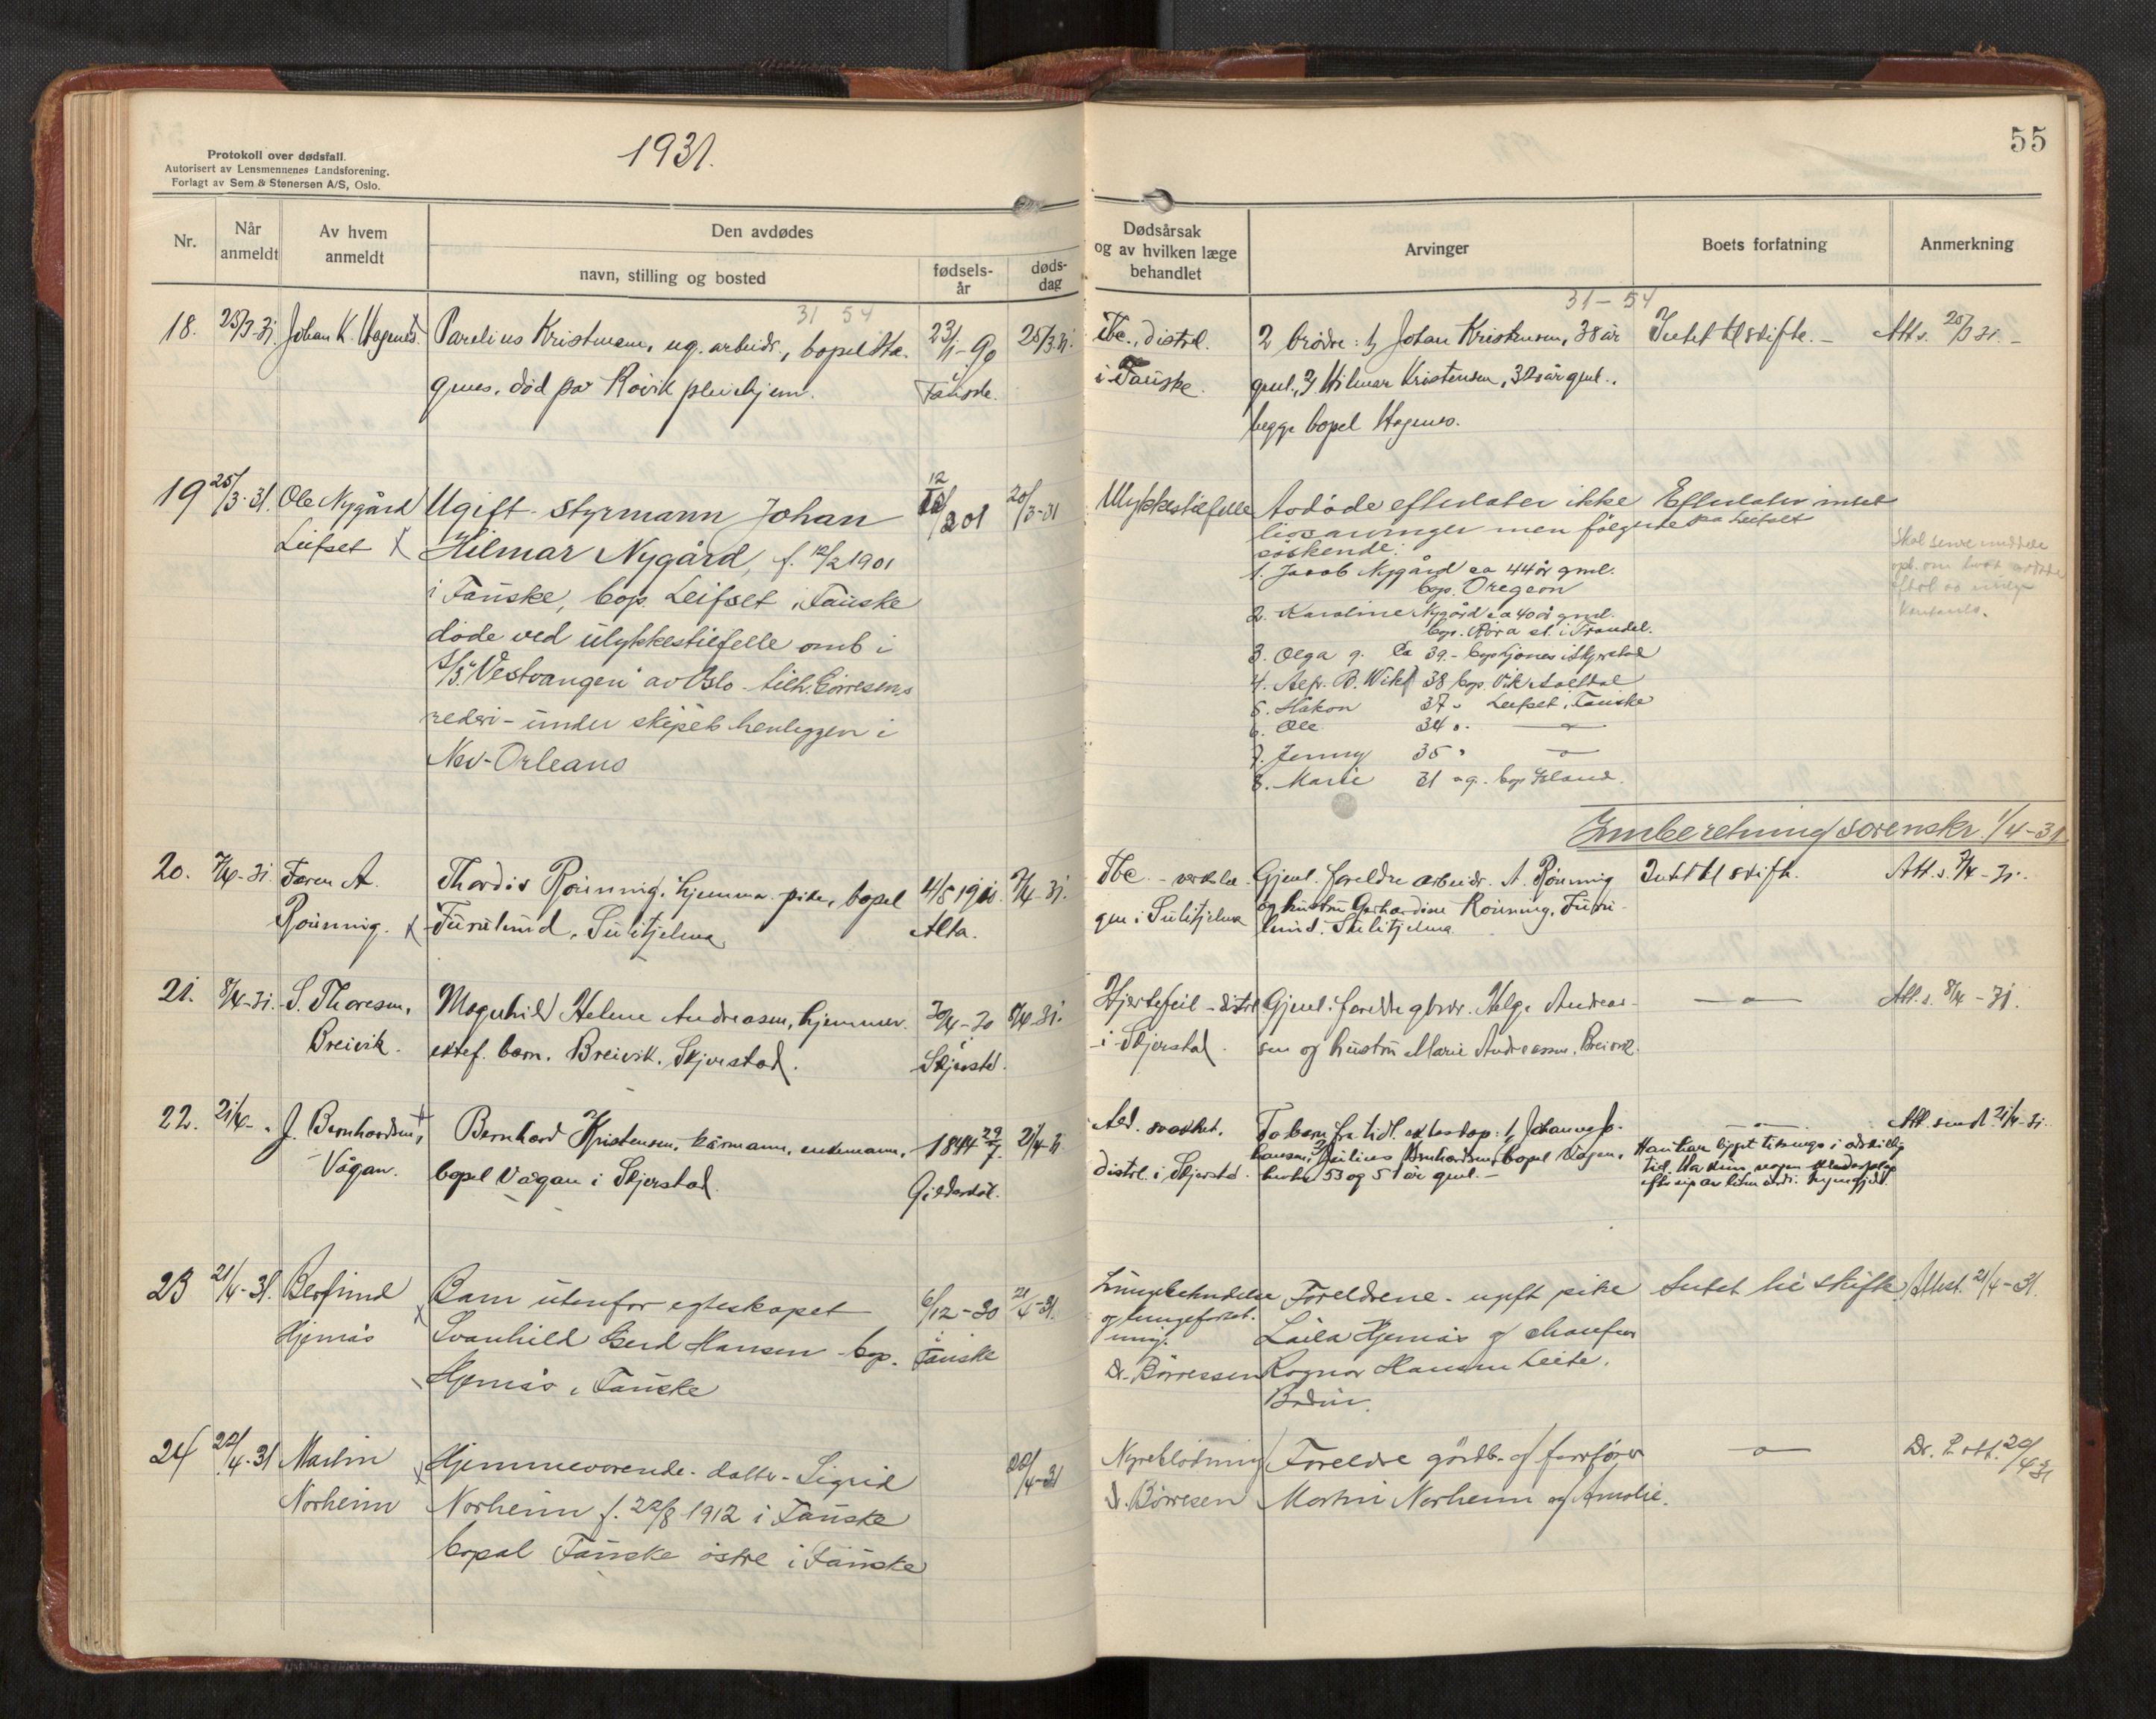 1931.
55
Protokoll over dødsfall.
Autorisert av Lensmennenes Landsforening.
Forlagt av Sem & Stenersen A/S, Oslo.
Nr.
Når anmeldt
Av hvem anmeldt
Den avdødes
navn, stilling og bosted
fødsels-år
døds-dag
Dødsårsak
og av hvilken læge
behandlet
Arvinger
Boets forfatning
Anmerkning
31 54
31 - 54
18. 25/3-31. Johan K. Hagenes
Parelius Kristensen, ug. arbeidr., bopel Ha-
genes, død på Røvik pleiehjem.
23/1-90
Fauske.
25/3-31.
Tbc., distrl.
i Fauske.
2 brødre: 1, Johan Kristensen, 38 år
gml., 2, Hilmar Kristensen, 32 år gml.,
begge bopel Hagenes.
Intet til skifte. -
Att s. 25/3 31. -
19 25/3-31. Ole Nygård
Leifset
Ugift styrmann Johan
Hilmar Nygård, f. 12/2 1901
i Fauske, bop. Leifset i Fauske
døde ved ulykkestilfelle omb i
S/S "Vestvangen" av Oslo tilh.
rederi - under skipets henliggen i
New-Orleans
12/2 01
20/3-31
Ulykkestilfelle
Avdøde efterlater ikke
livsarvinger men følgende
søskende:
1. Jacob Nygård ca 44 år gml.
bop. Oregeon
2. Karoline Nygård ca 40 år gml.
3. Olga g. ca 39 -
4. 38 bop. Vik
5. Håkon 37 - Leifset, Fauske
6. Ole 34 " - " -
7. Jenny 35 " - " -
8. Marie 31 ug. bop
Efterlater intet
Innberetning sorenskr. 1/4-31
20. 7/4-31. Faren A.
Rønning.
Thordis Rønning, hjemmev. pike, bopel
Furulund, Sulitjelma
4/8 1910.
Alta.
7/4-31.
Tbc. - verksl
i Sulitjelma
Gjenl. foreldre arbeidr. A. Rønning
og hustru Gerhardine Rønning, Furu-
lund, Sulitjelma
Intet til skifte.
Att. s. 7/4-31.
21. 8/4-31. S. Thoresen,
Breivik.
Magnhild Helene Andreasen, hjemmev.
ektef. barn, Breivik, Skjerstad.
30/4-30
Skjerstd.
8/4-31.
Hjertefeil - distrl
i Skjerstad.
Gjenl. foreldre gbrkr. Helge Andreas-
sen og hustru Marie Andreassen, Breivik.
- " -
Att. s. 8/4-31.
22. 21/4- " J. Bernhardsen,
Vågan.
Bernhard Kristensen, kårmann, enkemann,
bopel Vågan i Skjerstad.
1844 29/7.
Gildeskål.
21/4-31
Ald. svakhet.
distrl. i Skjerstd.
To barn fra tidl. ekteskap: 1, Johannes Jo-
hansen, 2, Julius Bernhardsen, bopel Vågan,
53 og 51 år gml. -
- " -
Han har ligget til sengs i adskillig
tid.
Att. sendt 21/4-31.
23 21/4-31. Berfinnd
Hjemås
Barn utenfor egteskapet
Svanhild Gerd Hansen bop.
Hjemås, Fauske
6/12-30
Fauske
21/4-31.
Lungebetendelse
Dr. Børressen
Foreldrene - ugift pike
Laila Hjemås og chauffør
Ragnar Hansen Leite,
Bodin.
Intet til skifte
Attest. 21/4-31.
24 22/4-31 Martin
Norheim
Hjemmeværende datter Sigrid
Norheim f. 22/8 1912 i Fauske
bopel Fauske østre i Fauske
20/4-31
Nyreblødning
Dr. Børresen
Foreldre gårdb. og
Martin Norheim og Amalie.
- " -